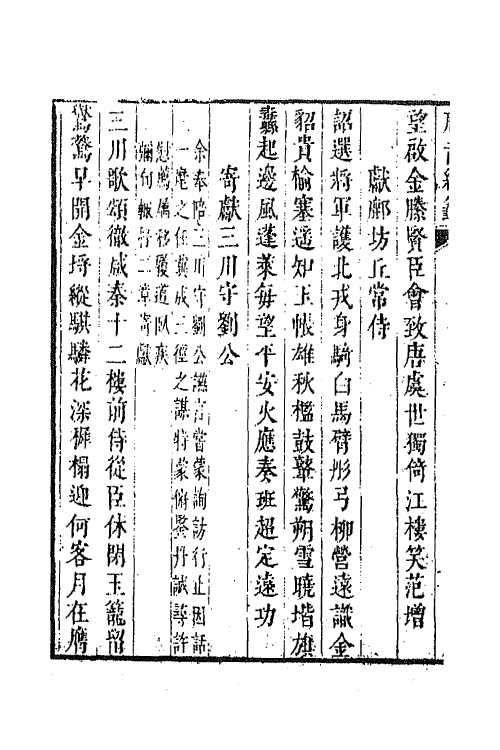 望啟金縢賢臣會致唐虞世獨倚江樓笑范增
獻鄜坊丘常侍
詔選將軍護北戎身騎白馬臂彤弓柳營遠識金
貂貴榆塞遥知玉帳雄秋檻鼓鼙驚朔雪曉堦旗
纛起邊風蓬萊每望平安火應奏班超定遠功
寄獻三川守劉公
余奉陪三川守劉公讌言嘗蒙詢訪行止因話
一麾之任冀成三徑之謀特蒙俯鑒丹誠尋許
慰薦屬移履道臥疾
彌旬輒抒二章寄獻
三川歌頌徹咸秦十二樓前侍從臣休閉玉籠留
鸑鷟早開金埒縱騏驎花深穉榻迎何客月在膺